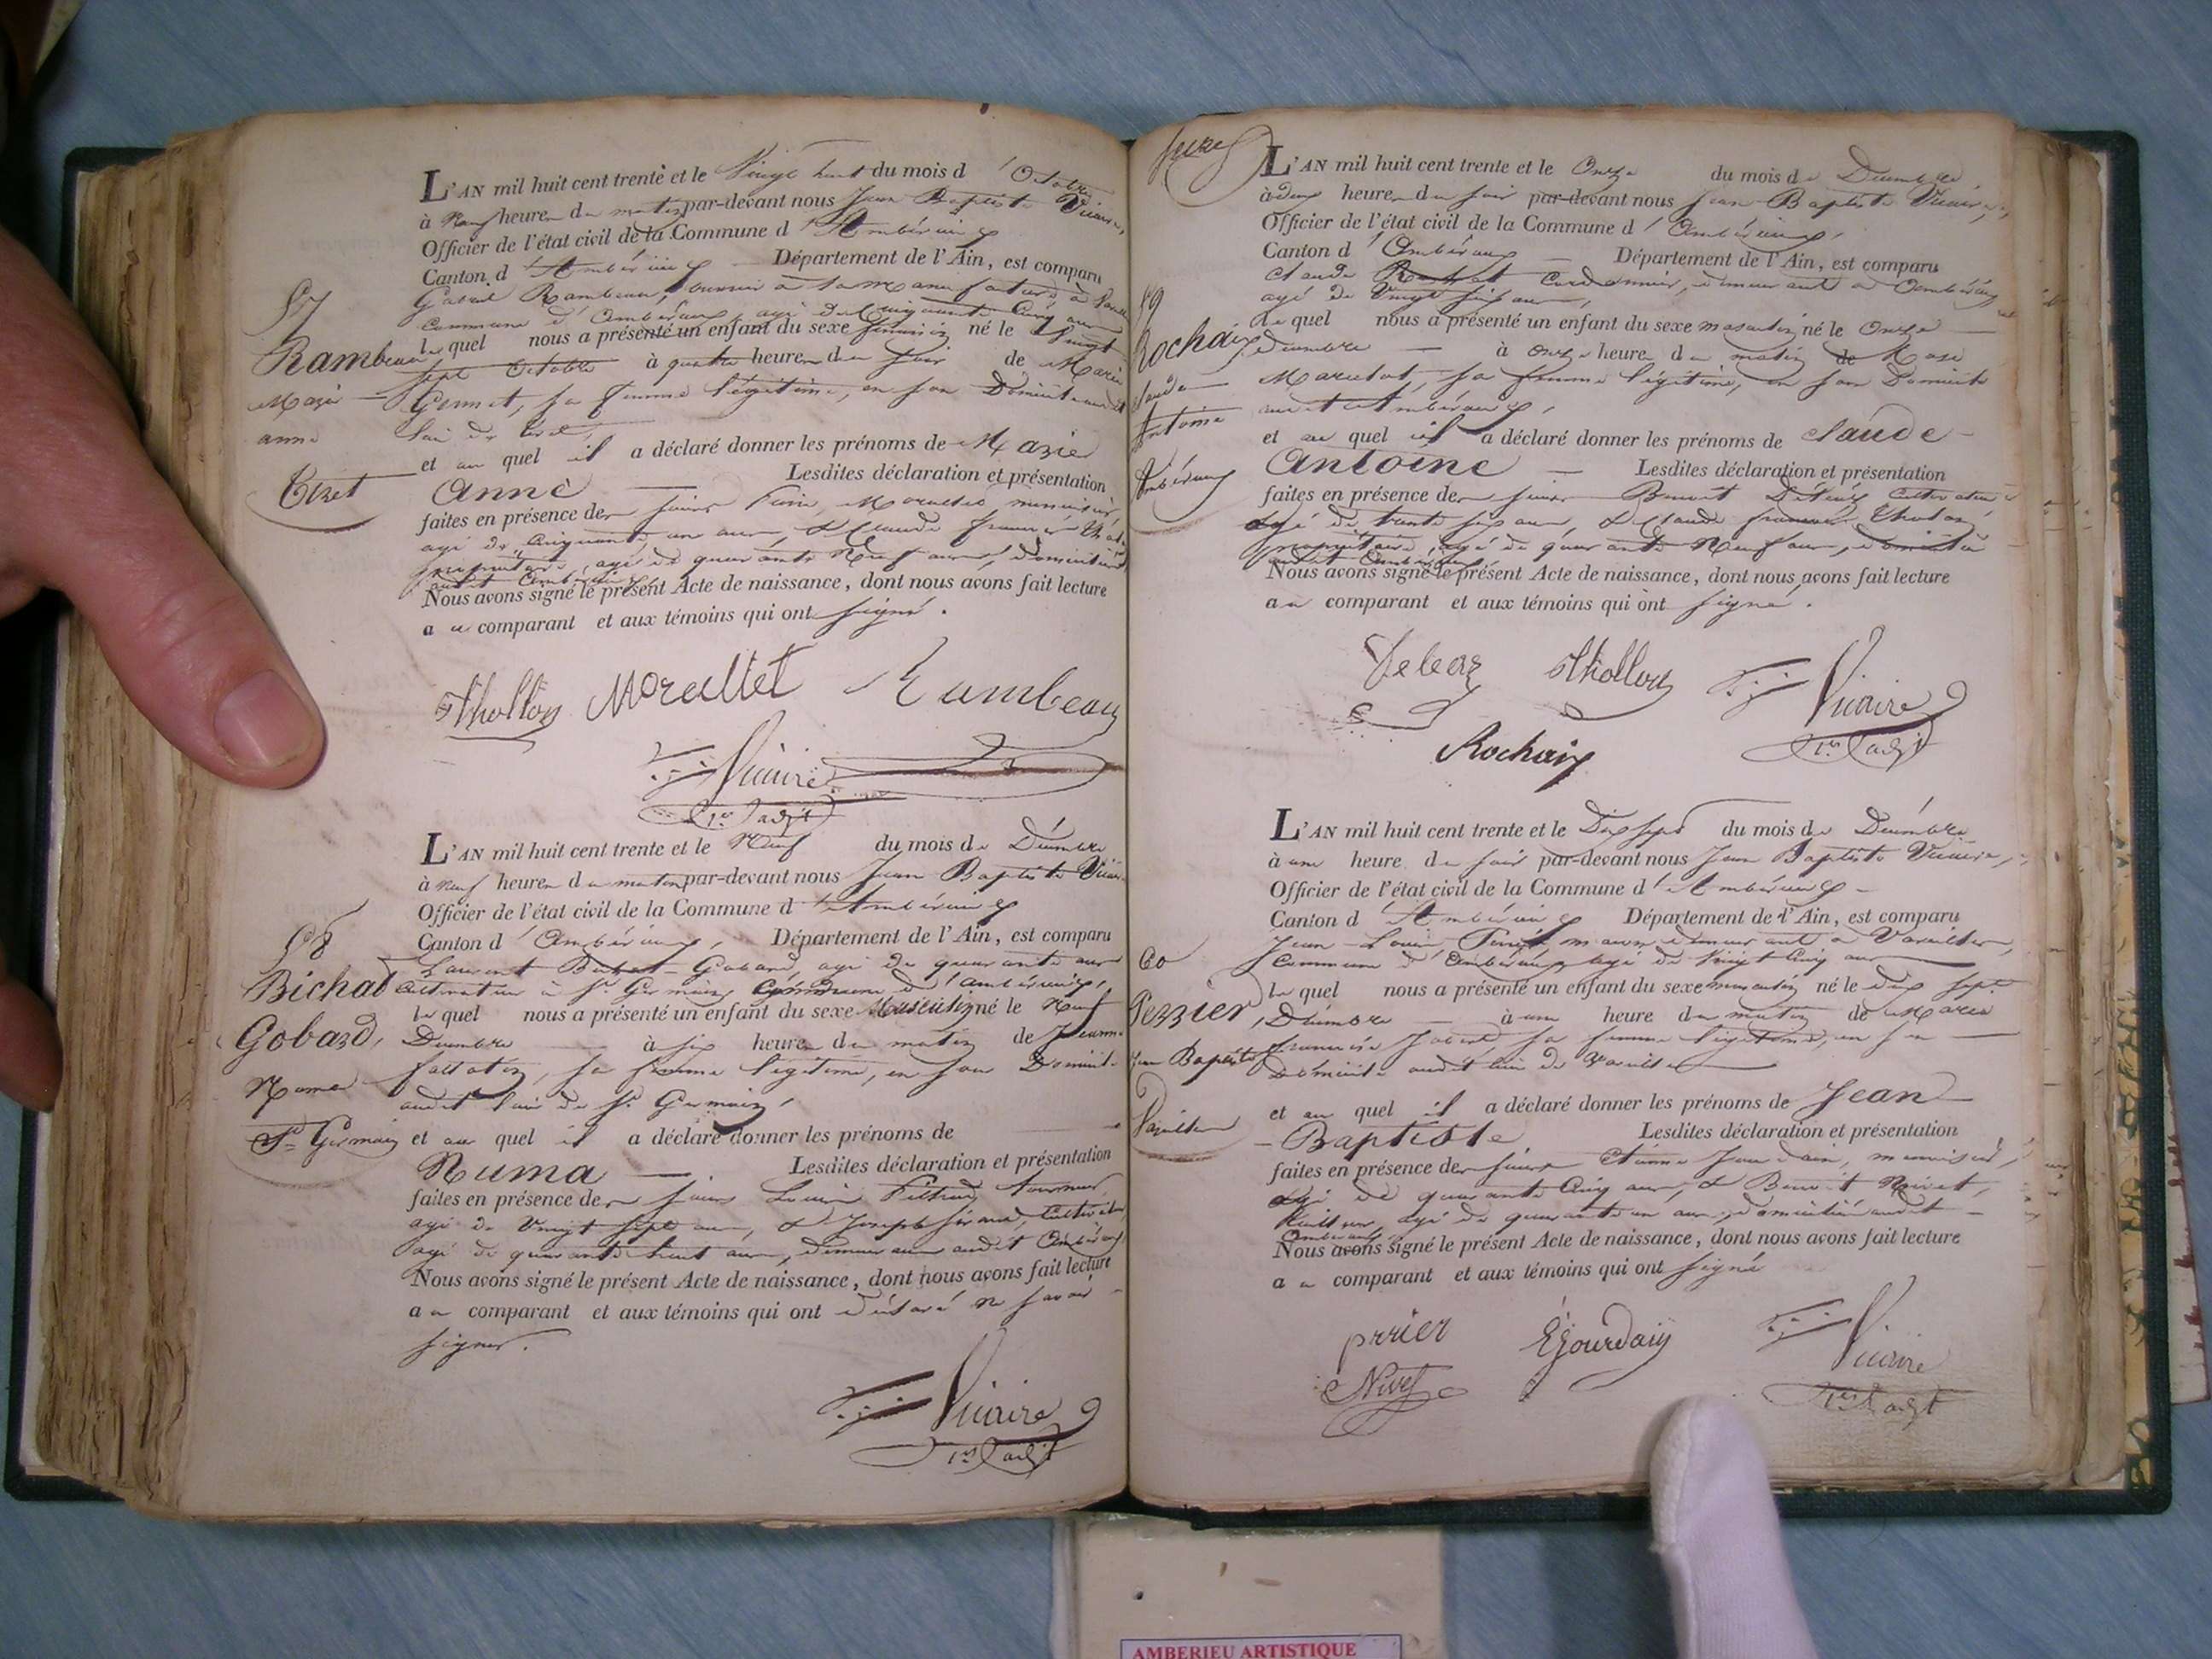 L'AN mil huit cent trente et le Vingt huit du mois d'Octobre
à Neuf heures du matin par-devant nous Jean Baptiste Vicaire,
Officier de l'état civil de la Commune d'Ambérieux
Canton d'Ambérieux Département de l'Ain, est comparu
57
Gabriel Rambeau, ouvrier à la manufacture à
Commune d'Ambérieux, agé de Cinquante Cinq ans
Rambeau
Le quel nous a présenté un enfant du sexe féminin né le Vingt
sept Octobre à quatre heures du soir de Marie
Marie
Gennet, sa femme légitime, en son Domicile audit
anne
lieu de Tiret,
et au quel il a déclaré donner les prénoms de Marie
Tiret
Anne Lesdites déclaration et présentation
faites en présence des sieurs Morellet menuisier,
agé de Cinquante un ans, & Claude françois
propriétaire, agé de quarante Neuf ans, domiciliés
audit Ambérieux,
Nous avons signé le présent Acte de naissance, dont nous avons fait lecture
au comparant et aux témoins qui ont signé.
Thollon Morellet Rambeau
Vicaire
1er adjt
L'AN mil huit cent trente et le Neuf du mois de Décembre
à Neuf heures du matin par-devant nous Jean Baptiste Vicaire
Officier de l'état civil de la Commune d'Ambérieux
Canton d'Ambérieux, Département de l'Ain, est comparu
58
Laurent Bichat-Gobard, agé de quarante ans
Bichat
Cultivateur à St Germain Commune d'Ambérieux,
Le quel nous a présenté un enfant du sexe Masculin né le Neuf
Gobard,
Décembre à six heures du matin de Jeanne
fallatin, sa femme légitime, en son Domicile
Numa
audit lieu de St Germain,
St Germain
et au quel il a déclaré donner les prénoms de
Numa Lesdites déclaration et présentation
faites en présence des sieurs Louis tourneur,
agé de Vingt sept ans, & Joseph féraud, Cultivateur
agé de quarante huit ans, demeurant audit Ambérieux
Nous avons signé le présent Acte de naissance, dont nous avons fait lecture
au comparant et aux témoins qui ont déclaré ne savoir
signer.
Vicaire
1er adjt
L'AN mil huit cent trente et le Onze du mois de Décembre
à deux heures du soir par-devant nous Jean Baptiste Vicaire,
Officier de l'état civil de la Commune d'Ambérieux,
Canton d'Ambérieux Département de l'Ain, est comparu
Claude Rochaix Cordonnier, demeurant à Ambérieux
59
agé de Vingt six ans,
Le quel nous a présenté un enfant du sexe masculin né le Onze
Rochaix
décembre à onze heures du matin de Rose
Claude
Marcelot, sa femme légitime, en son Domicile
Antoine
audit Ambérieux,
et au quel il a déclaré donner les prénoms de Claude
Ambérieux
Antoine Lesdites déclaration et présentation
faites en présence des sieurs Benoit Cultivateur
agé de trente six ans, & Claude françois Thollon
propriétaire, agé de quarante Neuf ans, domiciliés
audit Ambérieux
Nous avons signé le présent Acte de naissance, dont nous avons fait lecture
au comparant et aux témoins qui ont signé.
Thollon Vicaire
Rochaix 1er adjt
L'AN mil huit cent trente et le Dix sept du mois de Décembre
à une heure du soir par-devant nous Jean Baptiste Vicaire,
Officier de l'état civil de la Commune d'Ambérieux
Canton d'Ambérieux Département de l'Ain, est comparu
Jean-Louis maçon demeurant à Vareilles,
60
Commune d'Ambérieux agé de Vingt Cinq ans
Le quel nous a présenté un enfant du sexe masculin né le dix sept
Perrier,
Décembre à une heure du matin de Marie
Jean Baptiste
françoise sa femme légitime, en son
Domicile audit lieu de Vareilles
Vareilles
et au quel il a déclaré donner les prénoms de Jean
Baptiste Lesdites déclaration et présentation
faites en présence des sieurs Etienne Jourdain, menuisier,
agé de quarante Cinq ans, & Benoit Nivet,
agé de quarante un ans, domiciliés audit
Ambérieux
Nous avons signé le présent Acte de naissance, dont nous avons fait lecture
au comparant et aux témoins qui ont signé
perrier EJourdain Vicaire
Nivet 1er adjt
AMBERIEU ARTISTIQUE